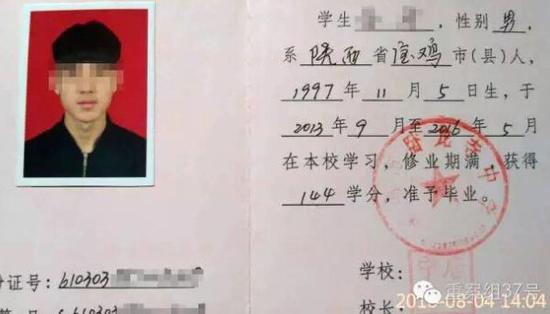 学生 , 性别 男 ,
系 陕西 省 宝鸡 市(县)人,
1997 年 11 月 5 日生, 于
2013 年 9 月至 2016 年 5 月
在本校学习, 修业期满, 获得
144 学分, 准予毕业。
份证号: 610303
学校:
号: 610303
校长:
重案组37号
08-04 14:04